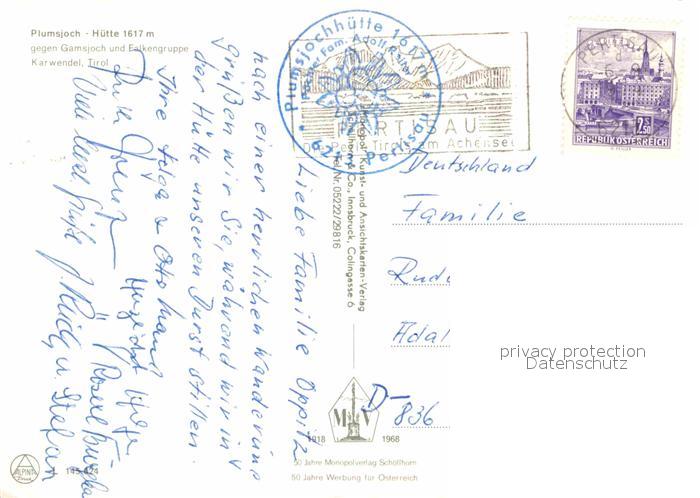 Plumsjoch - Hütte 1617 m
gegen Gamsjoch und Falkengruppe
Karwendel, Tirol
Liebe Familie Oppitz
nach einer herrlichen Wanderung
grüßen wir Sie, während wir in
der Hütte unseren Durst stillen.
Ihre Ida & Otto
Viele liebe Grüße
Stefan
Plumsjochhütte 1617m
Pächter Fam. Adolf
Pertisau
PERTISAU
Perle Tirols am Achensee
PERTISAU
2.50
REPUBLIK ÖSTERREICH
Monopol Kunst- und Ansichtskarten-Verlag
Schöllhorn & Co., Innsbruck, Colingasse 6
Tel. Nr. 05222/29816
Deutschland
Familie
Rudi
Adal
D-836
privacy protection
Datenschutz
M V
1918 1968
50 Jahre Monopolverlag Schöllhorn
50 Jahre Werbung für Österreich
ALPINA
Druck